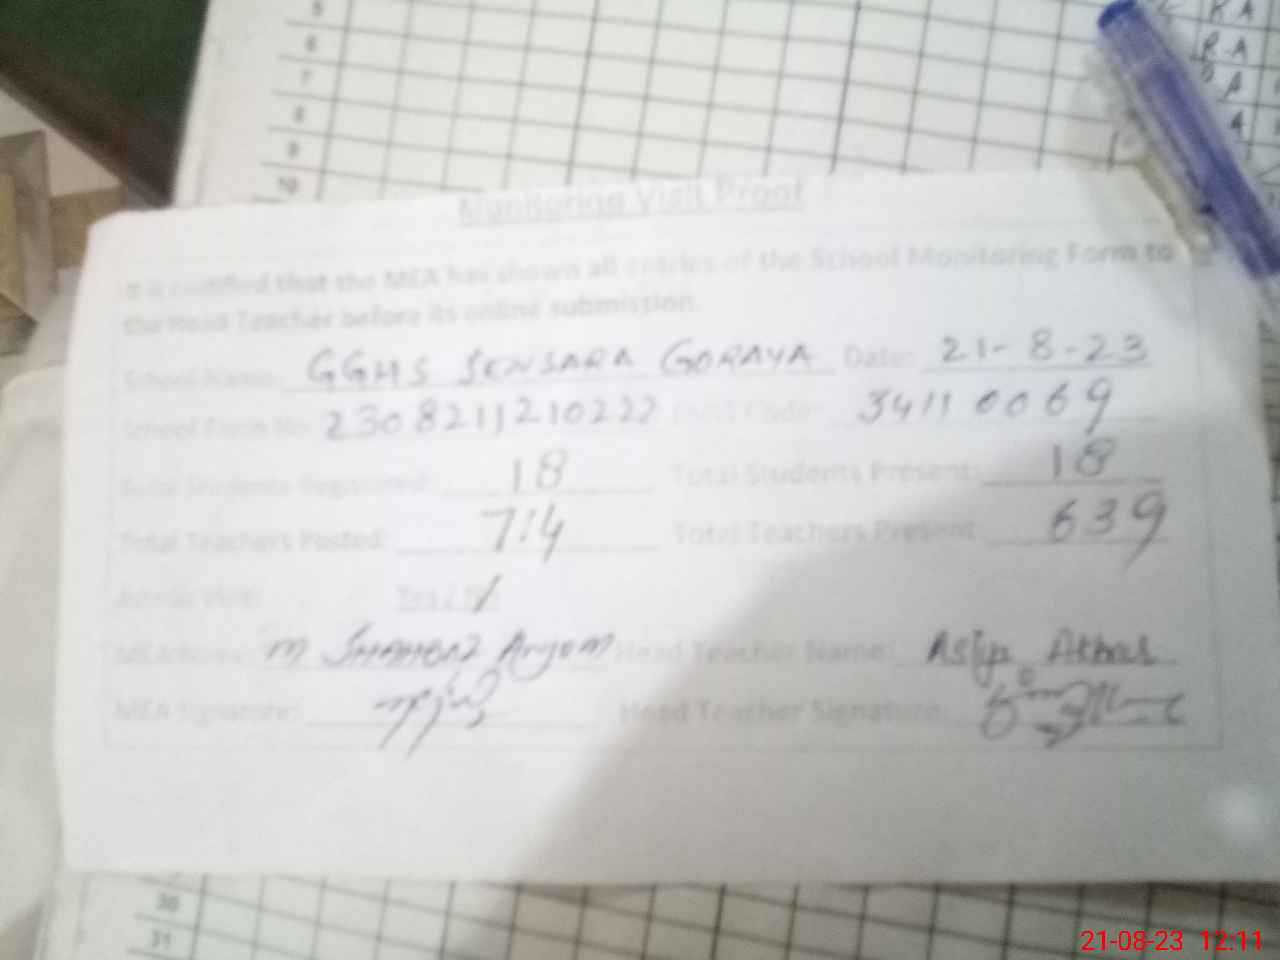 5
6 R A
7 R A
8 A
9 A
10
Monitoring Visit Proof
It is certified that the MEA has shown all entries of the School Monitoring Form to
the Head Teacher before its online submission.
School Name: GGHS SENSARA GORAYA Date: 21-8-23
School Form No: 2308211210222 Code: 34110069
Total Students Registered: 18 Total Students Present: 18
Total Teachers Posted: 714 Total Teachers Present: 639
Yes / No
MEA Name: M SHAHBAZ Anjum Head Teacher Name:
MEA Signature: Head Teacher Signature:
30
31
21-08-23 12:11